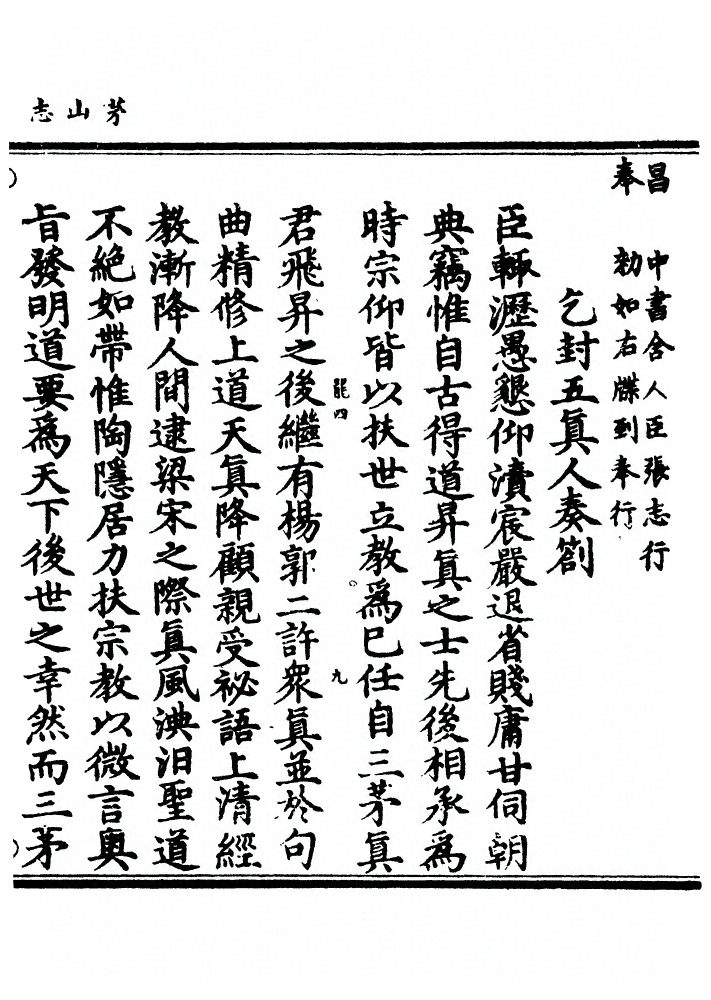 茅山志
昌　中書舍人臣張志行
奉　勑如右牒到奉行
乞封五眞人奏劄
臣輒瀝愚懇仰瀆宸嚴退省賤庸甘伺朝
典竊惟自古得道昇眞之士先後相承爲
時宗仰皆以扶世立教爲巳任自三茅眞
龍四
九
君飛昇之後繼有楊郭二許衆眞並於句
曲精修上道天眞降顧親受祕語上清經
教漸降人間逮梁宋之際眞風泱汨聖道
不絕如帶惟陶隱居力扶宗教以微言奧
旨發明道要爲天下後世之幸然而三茅